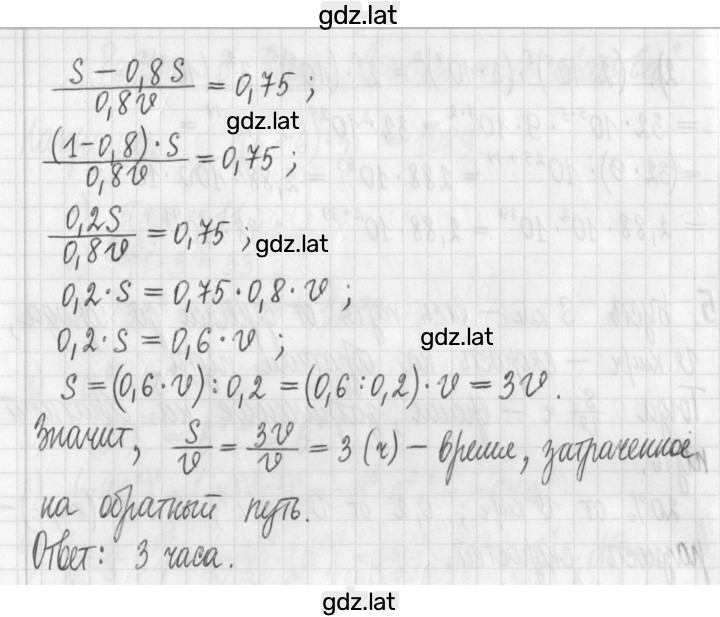 gdz.lat
(S − 0,8 S)/(0,8v) = 0,75 ;
gdz.lat
((1−0,8)·S)/(0,8v) = 0,75 ;
0,2S/(0,8v) = 0,75 ;
gdz.lat
0,2·S = 0,75·0,8·v ;
0,2·S = 0,6·v ;
gdz.lat
S = (0,6·v):0,2 = (0,6:0,2)·v = 3v.
Значит, S/v = 3v/v = 3 (ч) – время, затраченное
на обратный путь.
Ответ: 3 часа.
gdz.lat